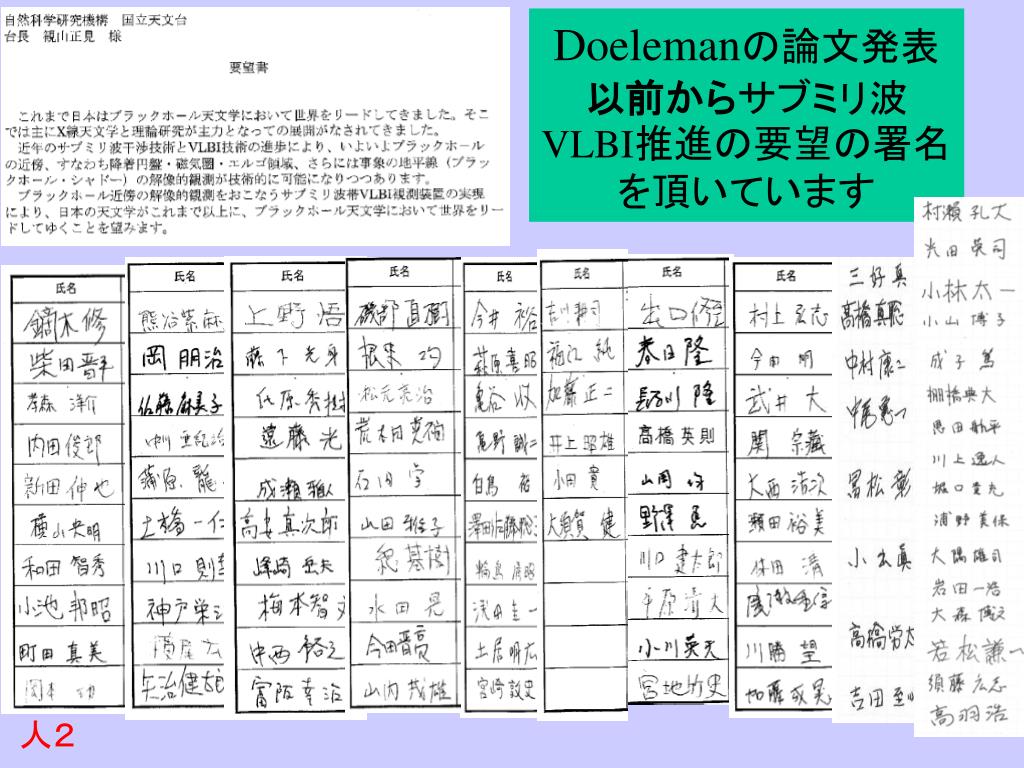 自然科学研究機構　国立天文台
台長　観山正見　様
要望書
これまで日本はブラックホール天文学において世界をリードしてきました。そこ
では主にX線天文学と理論研究が主力となっての展開がなされてきました。
近年のサブミリ波干渉技術とVLBI技術の進歩により、いよいよブラックホール
の近傍、すなわち降着円盤・磁気圏・エルゴ領域、さらには事象の地平線（ブラッ
クホール・シャドー）の解像的観測が技術的に可能になりつつあります。
ブラックホール近傍の解像的観測をおこなうサブミリ波帯VLBI観測装置の実現
により、日本の天文学がこれまで以上に、ブラックホール天文学において世界をリー
ドしてゆくことを望みます。
Doelemanの論文発表
以前からサブミリ波
VLBI推進の要望の署名
を頂いています
氏名
鏑木 修
柴田 晋平
孝森 洋介
内田 俊郎
新田 伸也
横山 央明
和田 智秀
小池 邦昭
町田 真美
氏名
熊谷 紫麻
岡 朋治
佐藤 麻美子
中川 亜紀治
蒲原 龍一
土橋 一仁
川口 則幸
神戸 栄治
矢治 健太郎
氏名
上野 悟
藤下 光身
氏原 秀樹
遠藤 光
成瀬 雅人
高安 真次郎
峰崎 岳夫
梅本 智文
中西 裕之
富阪 幸治
氏名
磯部 直樹
根来 均
松元 亮治
石田 学
山田 雅子
水田 晃
今田 晋亮
山内 茂雄
氏名
今井 裕
萩原 喜昭
亀谷 收
高野 誠二
白鳥 裕
輪島 清昭
浅田 圭一
土居 明広
宮崎 敦史
氏名
吉川 耕司
福江 純
加藤 正二
井上 昭雄
小田 寛
大須賀 健
氏名
出口 修至
春日 隆
長谷川 隆
高橋 英則
川口 建太郎
平原 靖大
小川 英夫
宮地 竹史
氏名
村上 弘志
武井 大
関 宗蔵
大西 浩次
瀬田 裕美
川勝 望
加藤 成晃
三好 真
高橋 真聡
中村 康二
黒松 彰
高橋 労太
村瀬 孔大
米田 英司
小林 太一
小山 博子
成子 篤
棚橋 典大
恩田 航平
川上 逸人
堀口 貴光
浦野 美保
大隅 雄司
岩田 一浩
大森 博之
若松 謙一
須藤 広志
高羽 浩
人２